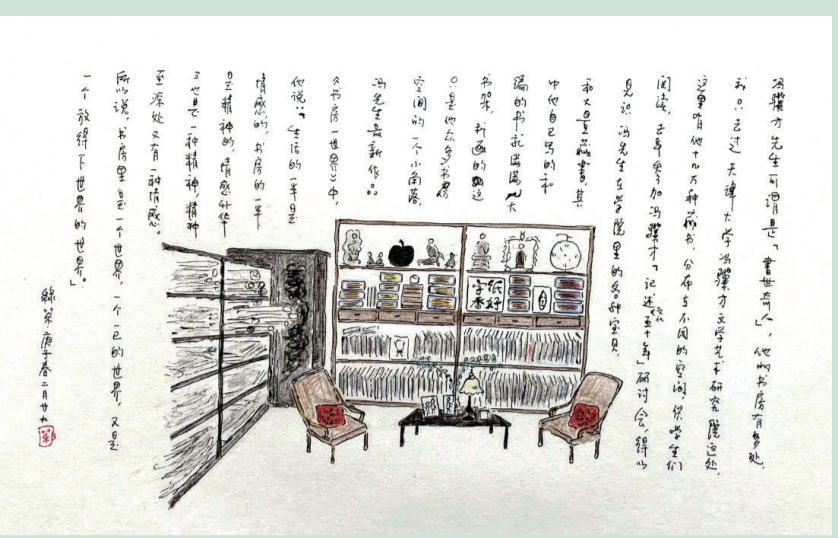 冯骥才先生可谓是「书世奇人」，他的书房有多处，
我只去过天津大学冯骥才文学艺术研究院这处，
这里有他十几万种藏书，分布在不同的空间，供学生们
阅读，去年参加冯骥才「记述文化五十年」研讨会，得以
见识冯先生在学院里的各种宝贝
和大量藏书，其
中他自己写的和
编的书就满满几大
书架，我画的这
只是他众多书房
空间的一个小角落，
冯先生最新作品
《书房一世界》中，
他说：「生活的一半是
情感的，书房的一半
是精神的，情感升华
也是一种精神，精神
至深处又有一种情感。
所以说，书房里是一个世界，一个一己的世界，又是
一个放得下世界的世界。」
绿茶 庚子春二月廿九
字纸
香好